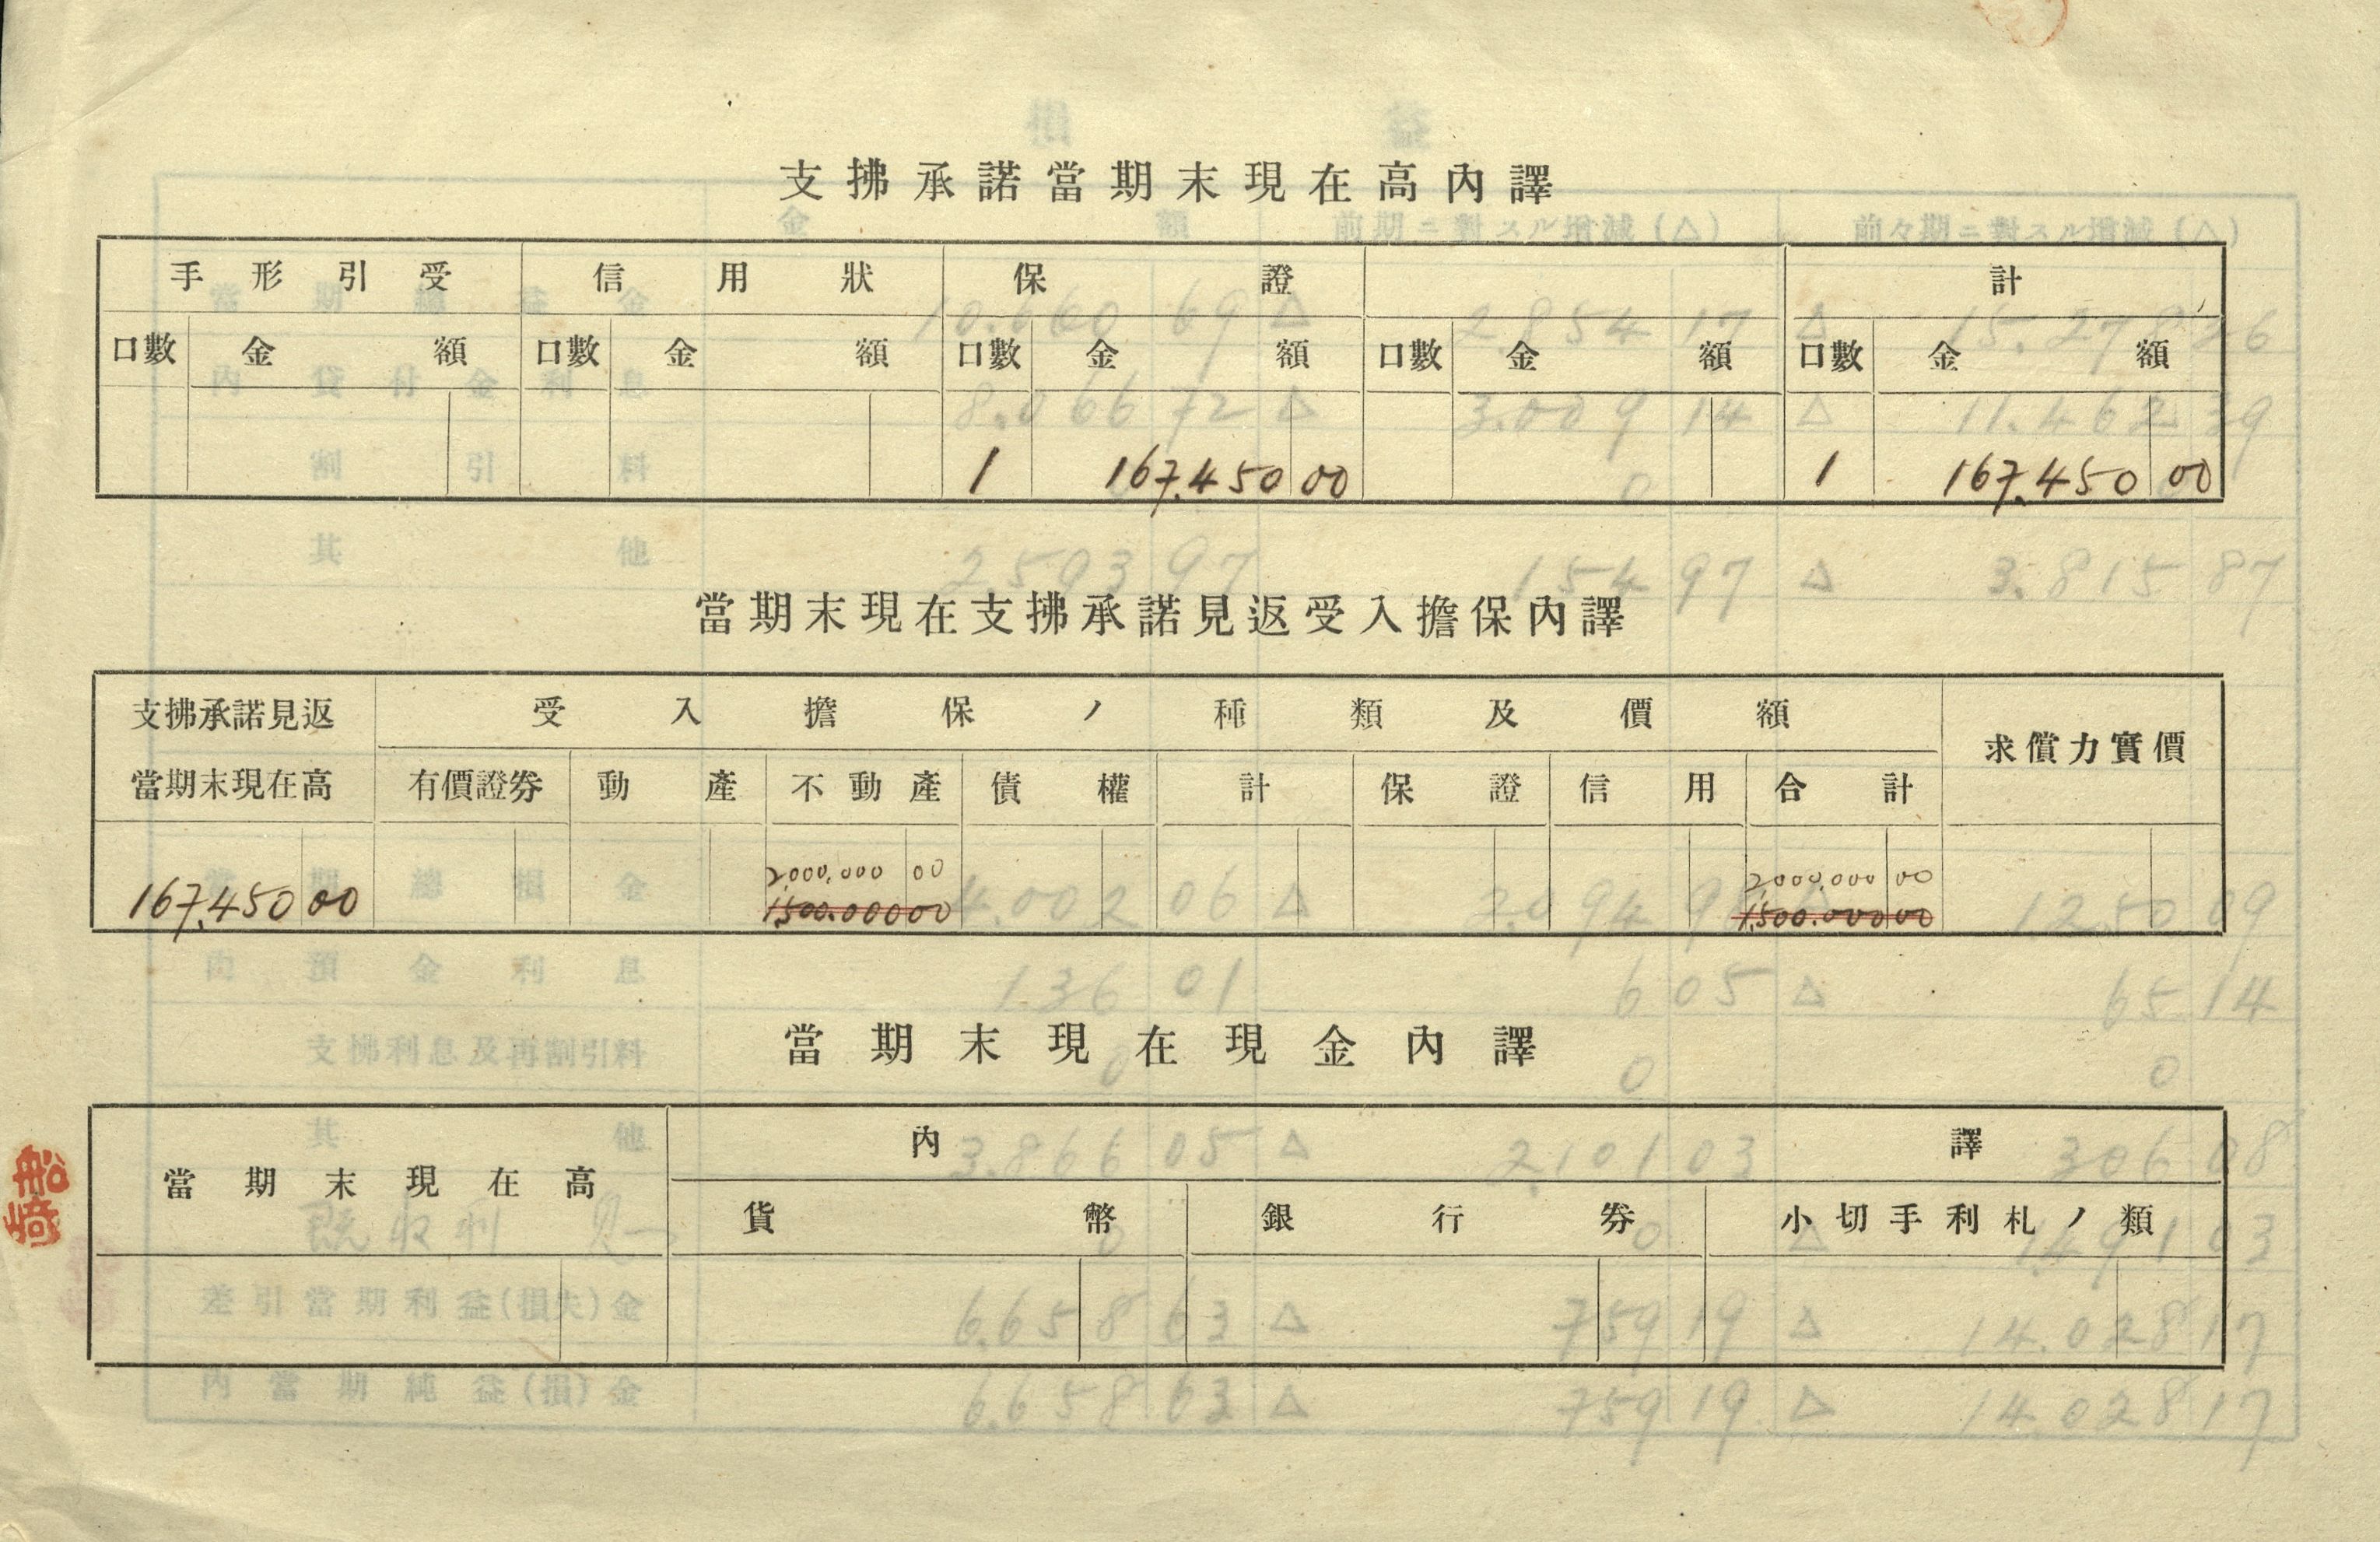 支拂承諾當期末現在高內譯
手形引受 信用狀 保證 計
口數 金額 口數 金額 口數 金額 口數 金額 口數 金額
1 167.450 00 1 167.450 00
當期末現在支拂承諾見返受入擔保內譯
支拂承諾見返 受入擔保ノ種類及價額 求償力實價
當期末現在高 有價證券 動產 不動產 債權 計 保證 信用 合計
2,000,000 00 2,000,000 00
167.450 00 1,500.000 00 1,500.000 00
當期末現在現金內譯
當期末現在高 內譯
貨幣 銀行券 小切手利札ノ類
船崎